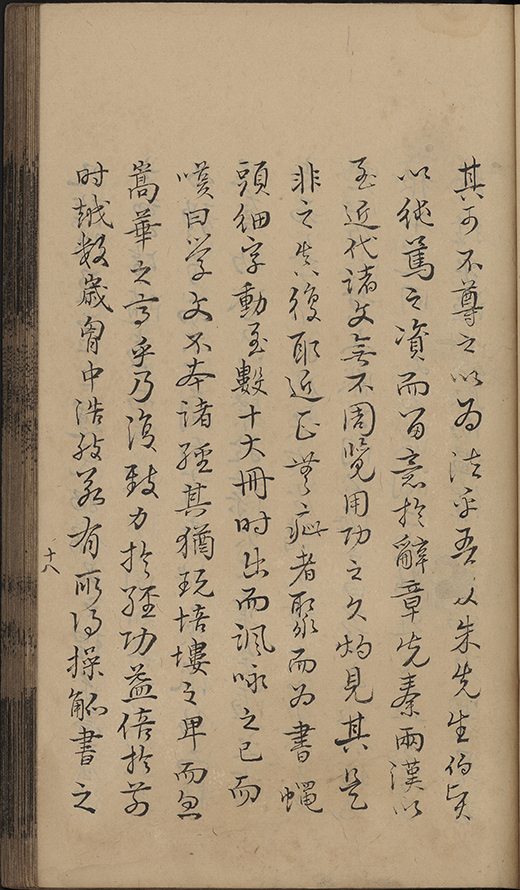 其可不尊之以為法乎吾友朱先生伯賢
以純篤之資而留意於辭章先秦兩漢以
至近代諸文無不周覽用功之久灼見其是
非之真復取近正無疵者聚而為書蠅
頭細字動至數十大冊時出而諷咏之已而
嘆曰學文不本諸經其猶玩培塿之卑而忽
嵩華之高乎乃復致力於經功益倍於前
时越數歲胷中浩然若有所得操觚書之
十八